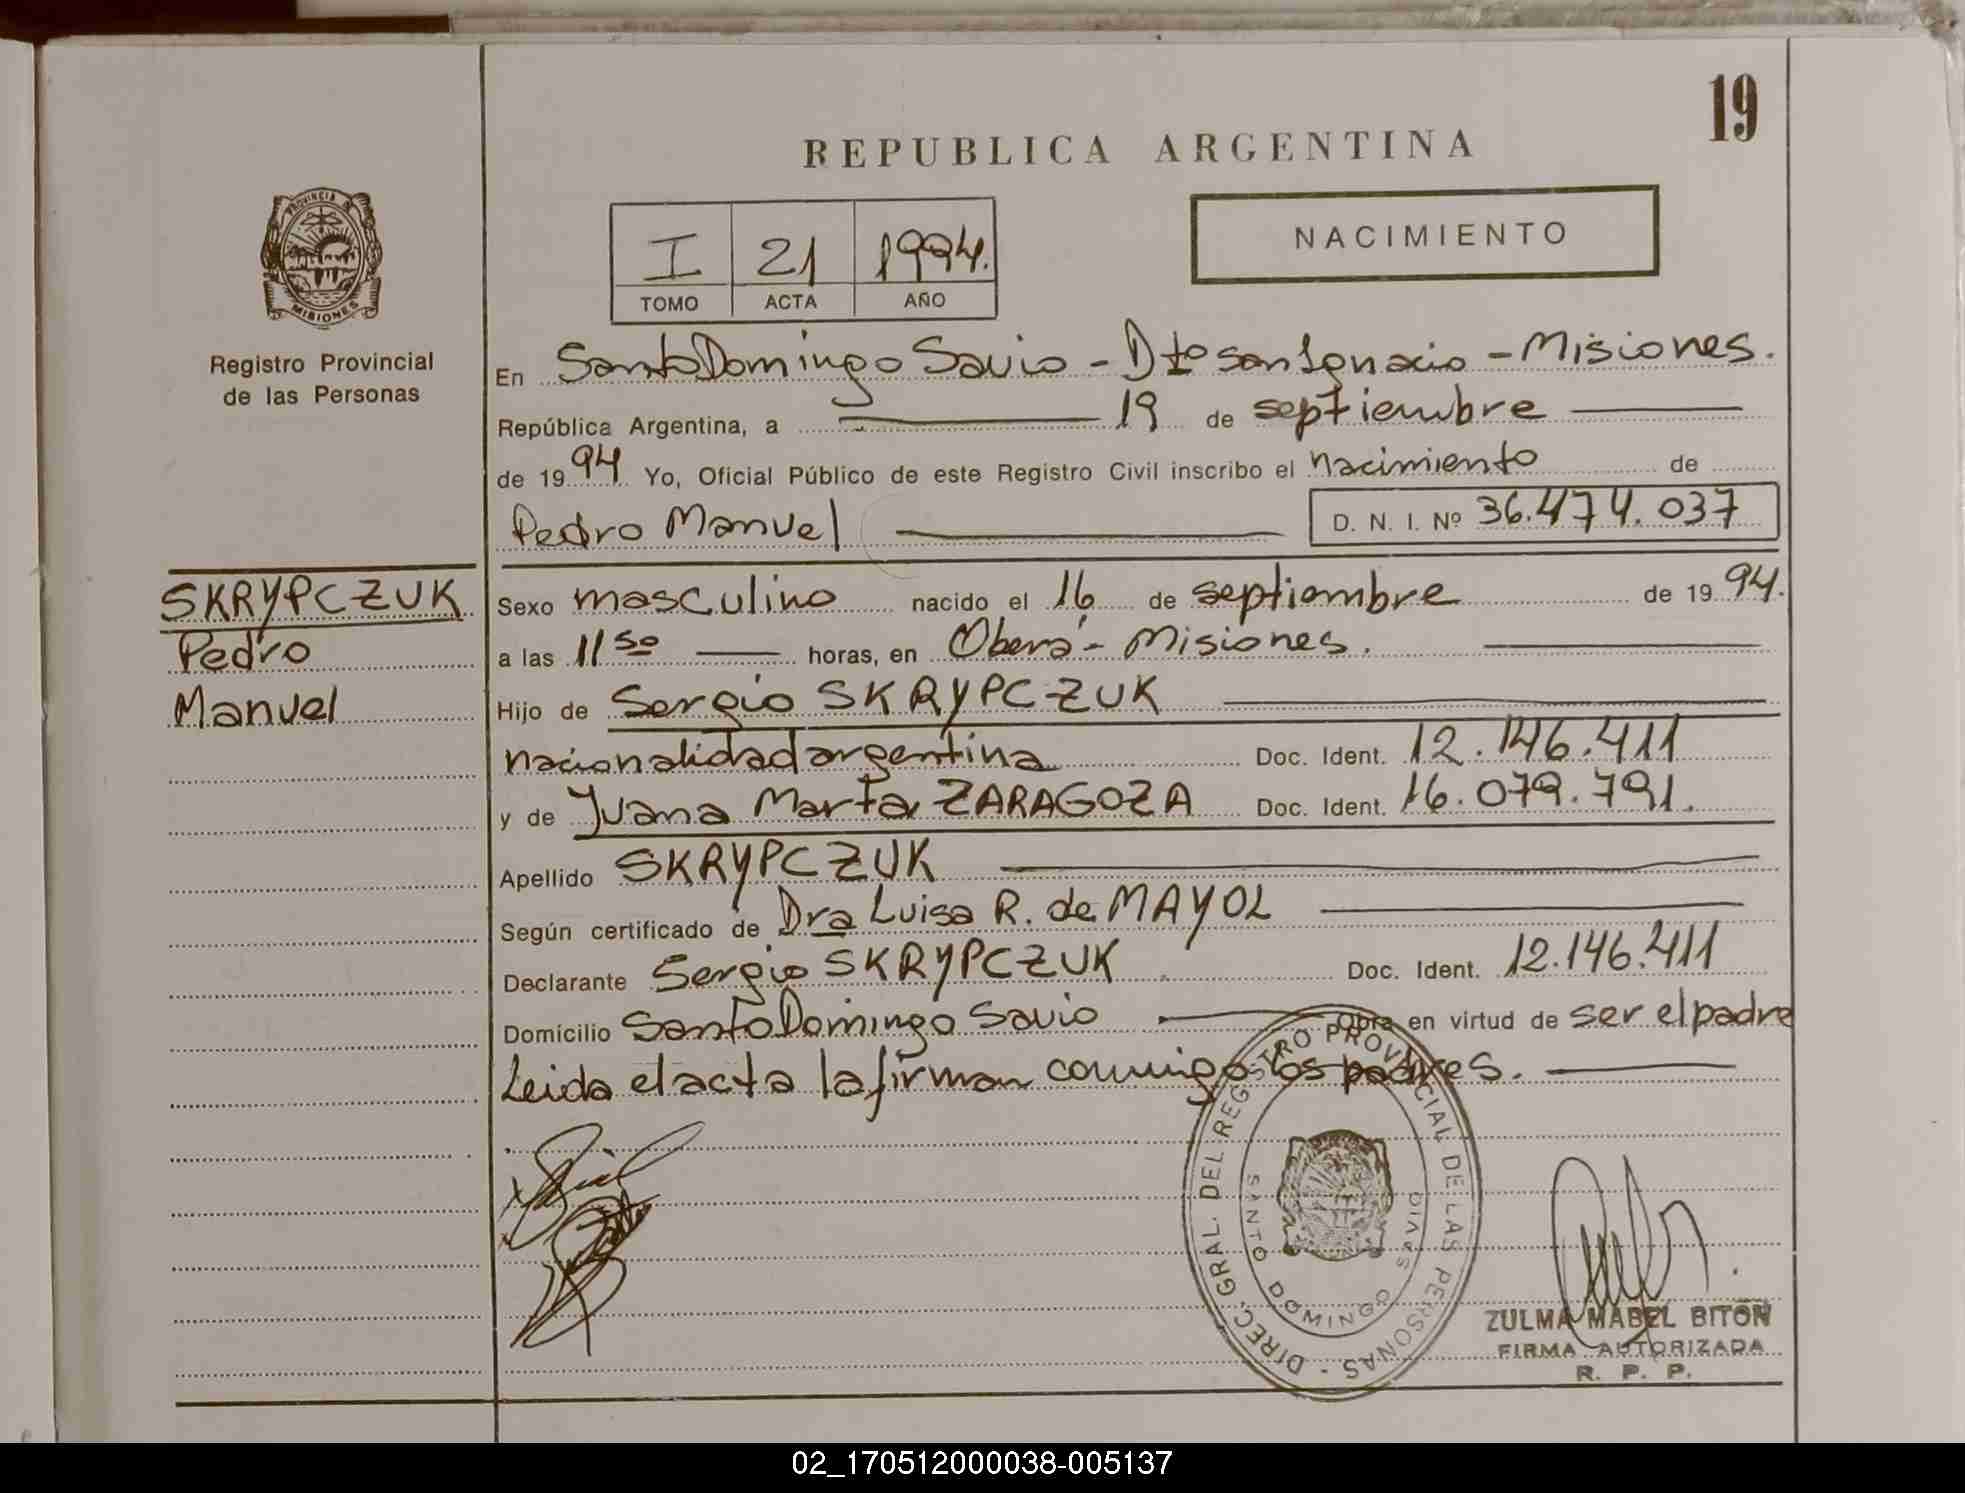 19
REPUBLICA ARGENTINA
PROVINCIA DE
MISIONES
Registro Provincial
de las Personas
I 21 1994.
TOMO ACTA AÑO
NACIMIENTO
En Santo Domingo Savio - Dto San Ignacio - Misiones.
República Argentina, a 19 de septiembre
de 1994 Yo, Oficial Público de este Registro Civil inscribo el nacimiento de
Pedro Manuel D. N. I. Nº 36.474.037
SKRYPCZUK
Pedro
Manuel
Sexo masculino nacido el 16 de septiembre de 1994.
a las 11 50 horas, en Oberá - Misiones.
Hijo de Sergio SKRYPCZUK
nacionalidad argentina Doc. Ident. 12.146.411
y de Juana Marta ZARAGOZA Doc. Ident. 16.079.791.
Apellido SKRYPCZUK
Según certificado de Dra Luisa R. de MAYOL
Declarante Sergio SKRYPCZUK Doc. Ident. 12.146.411
Domicilio Santo Domingo Savio Obra en virtud de ser el padre
Leida el acta la firman conmigo los padres.
DIREC. GRAL. DEL REGISTRO PROVINCIAL DE LAS PERSONAS -
SANTO DOMINGO SAVIO
ZULMA MABEL BITON
FIRMA AUTORIZADA
R. P. P.
02_170512000038-005137